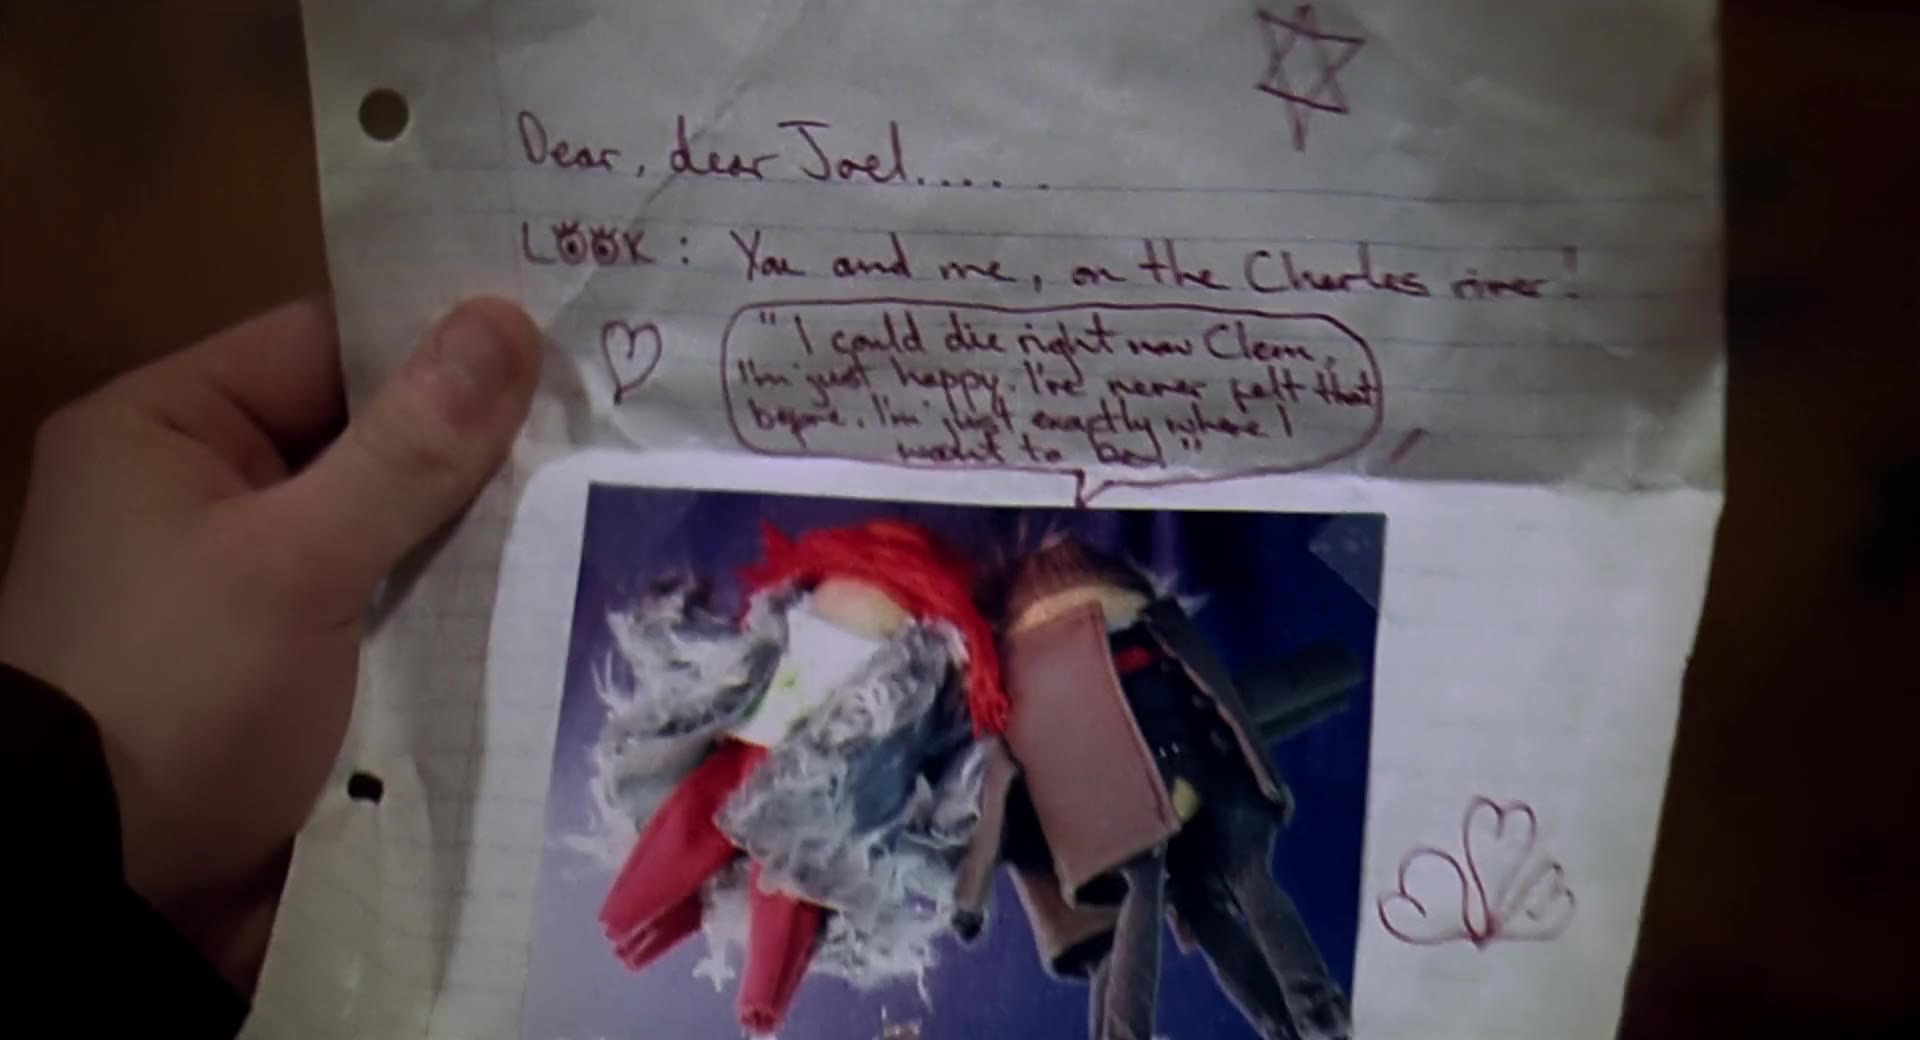 Dear, dear Joel.....
LOOK: You and me, on the Charles river!
"I could die right now Clem,
I'm just happy. I've never felt that
before. I'm just exactly where I
want to be"